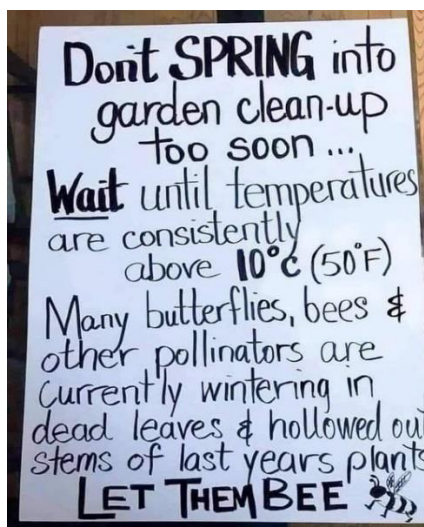 Don't SPRING into
garden clean-up
too soon ...
Wait until temperatures
are consistently
above 10°C (50°F)
Many butterflies, bees &
other pollinators are
currently wintering in
dead leaves & hollowed out
stems of last years plants
LET THEM BEE